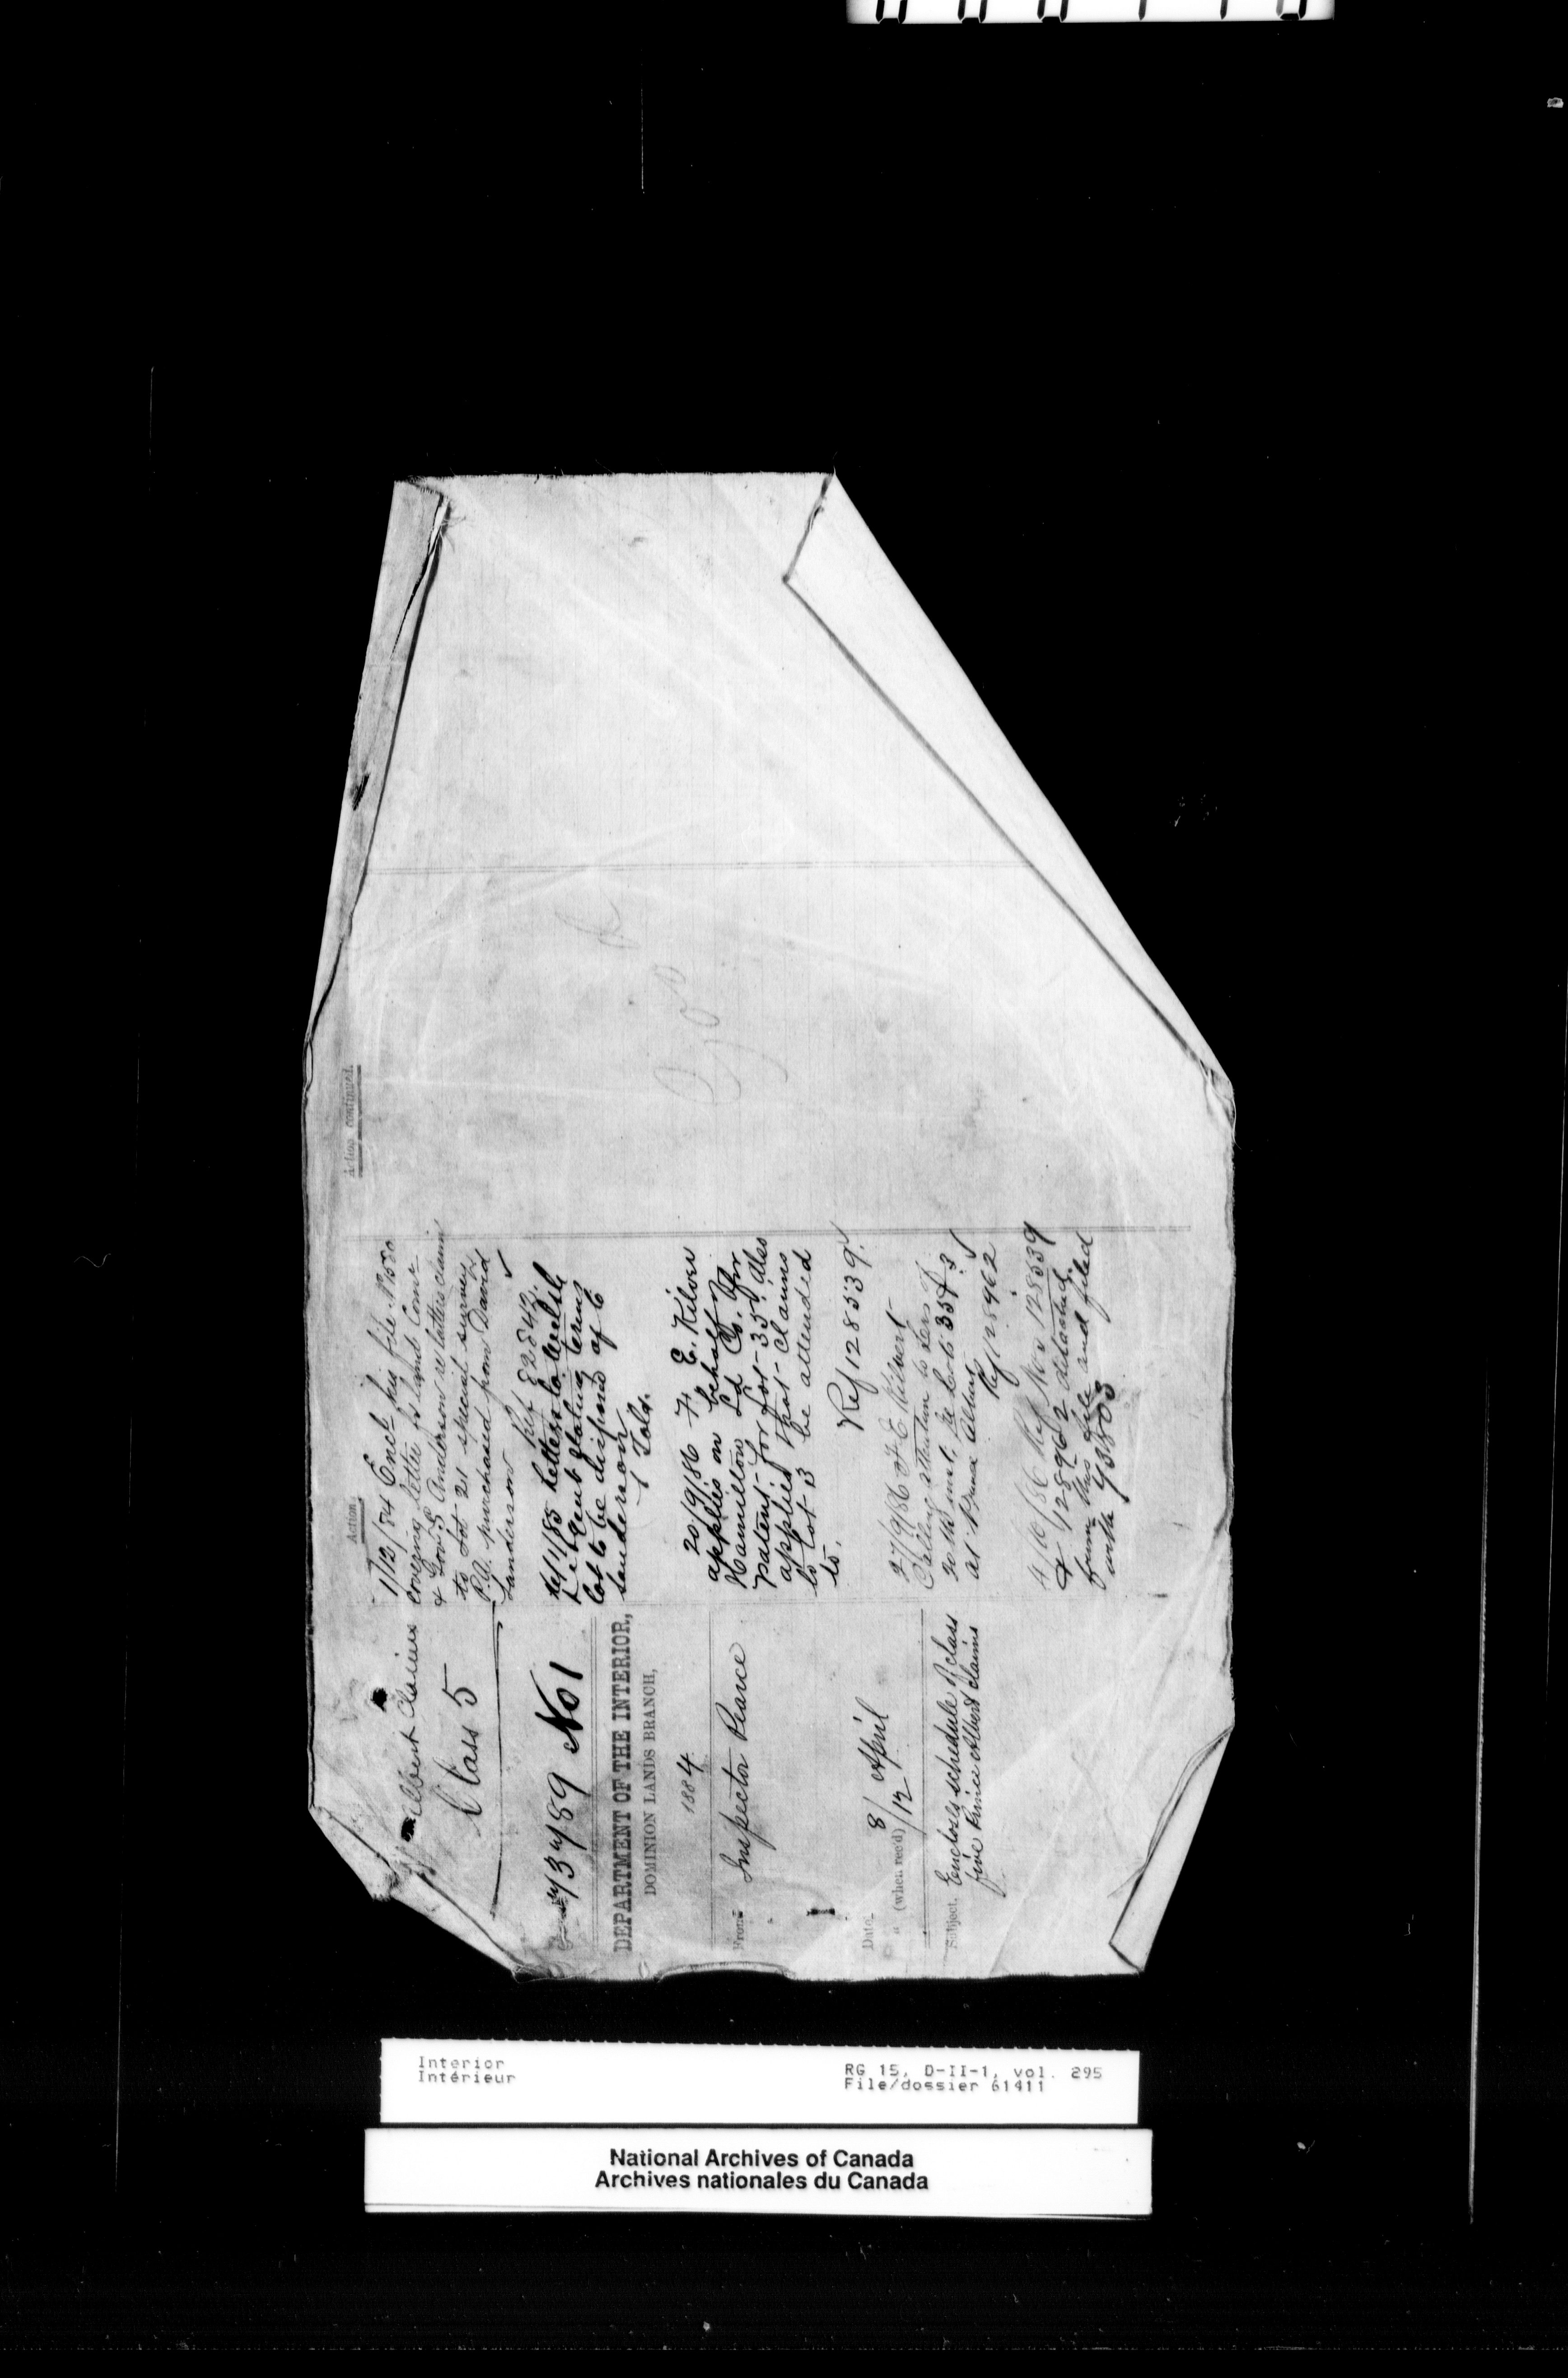 Albert Claims
Class 5
73789 No 1
DEPARTMENT OF THE INTERIOR,
DOMINION LANDS BRANCH,
1884
From: Inspector Pearce
Date. 8 April
" (when rec'd) /12
Subject. Encloses schedule of class
five Prince Albert claims
Action.
1/12/84 Encl his file No 1580
covering letter fr land Comr
& Gov S Anderson re latters claim
to Lot 21 special survey
P.A. purchased from David
Sanderson
Ref 82843.
letter to
stating terms
lot to be disposed of C
Sanderson
20/9/86 F. E. Kilver
applies on behalf of
Hamilton Ld Co. for
patent for Lot 35. Also
applied that claims
to Lot 13 be attended
to.
Ref 128539.
27/9/86 F. E Kilvert
Calling attention to lers of
20th inst. re Lots 35 & 3
at Prince Albert
Ref 128962
4/10/86 Ref Nos 128539
& 128962 detached
from this file and filed
with 73803
Action continued.
Interior
Intérieur
RG 15, D-II-1, vol. 295
File/dossier 61411
National Archives of Canada
Archives nationales du Canada